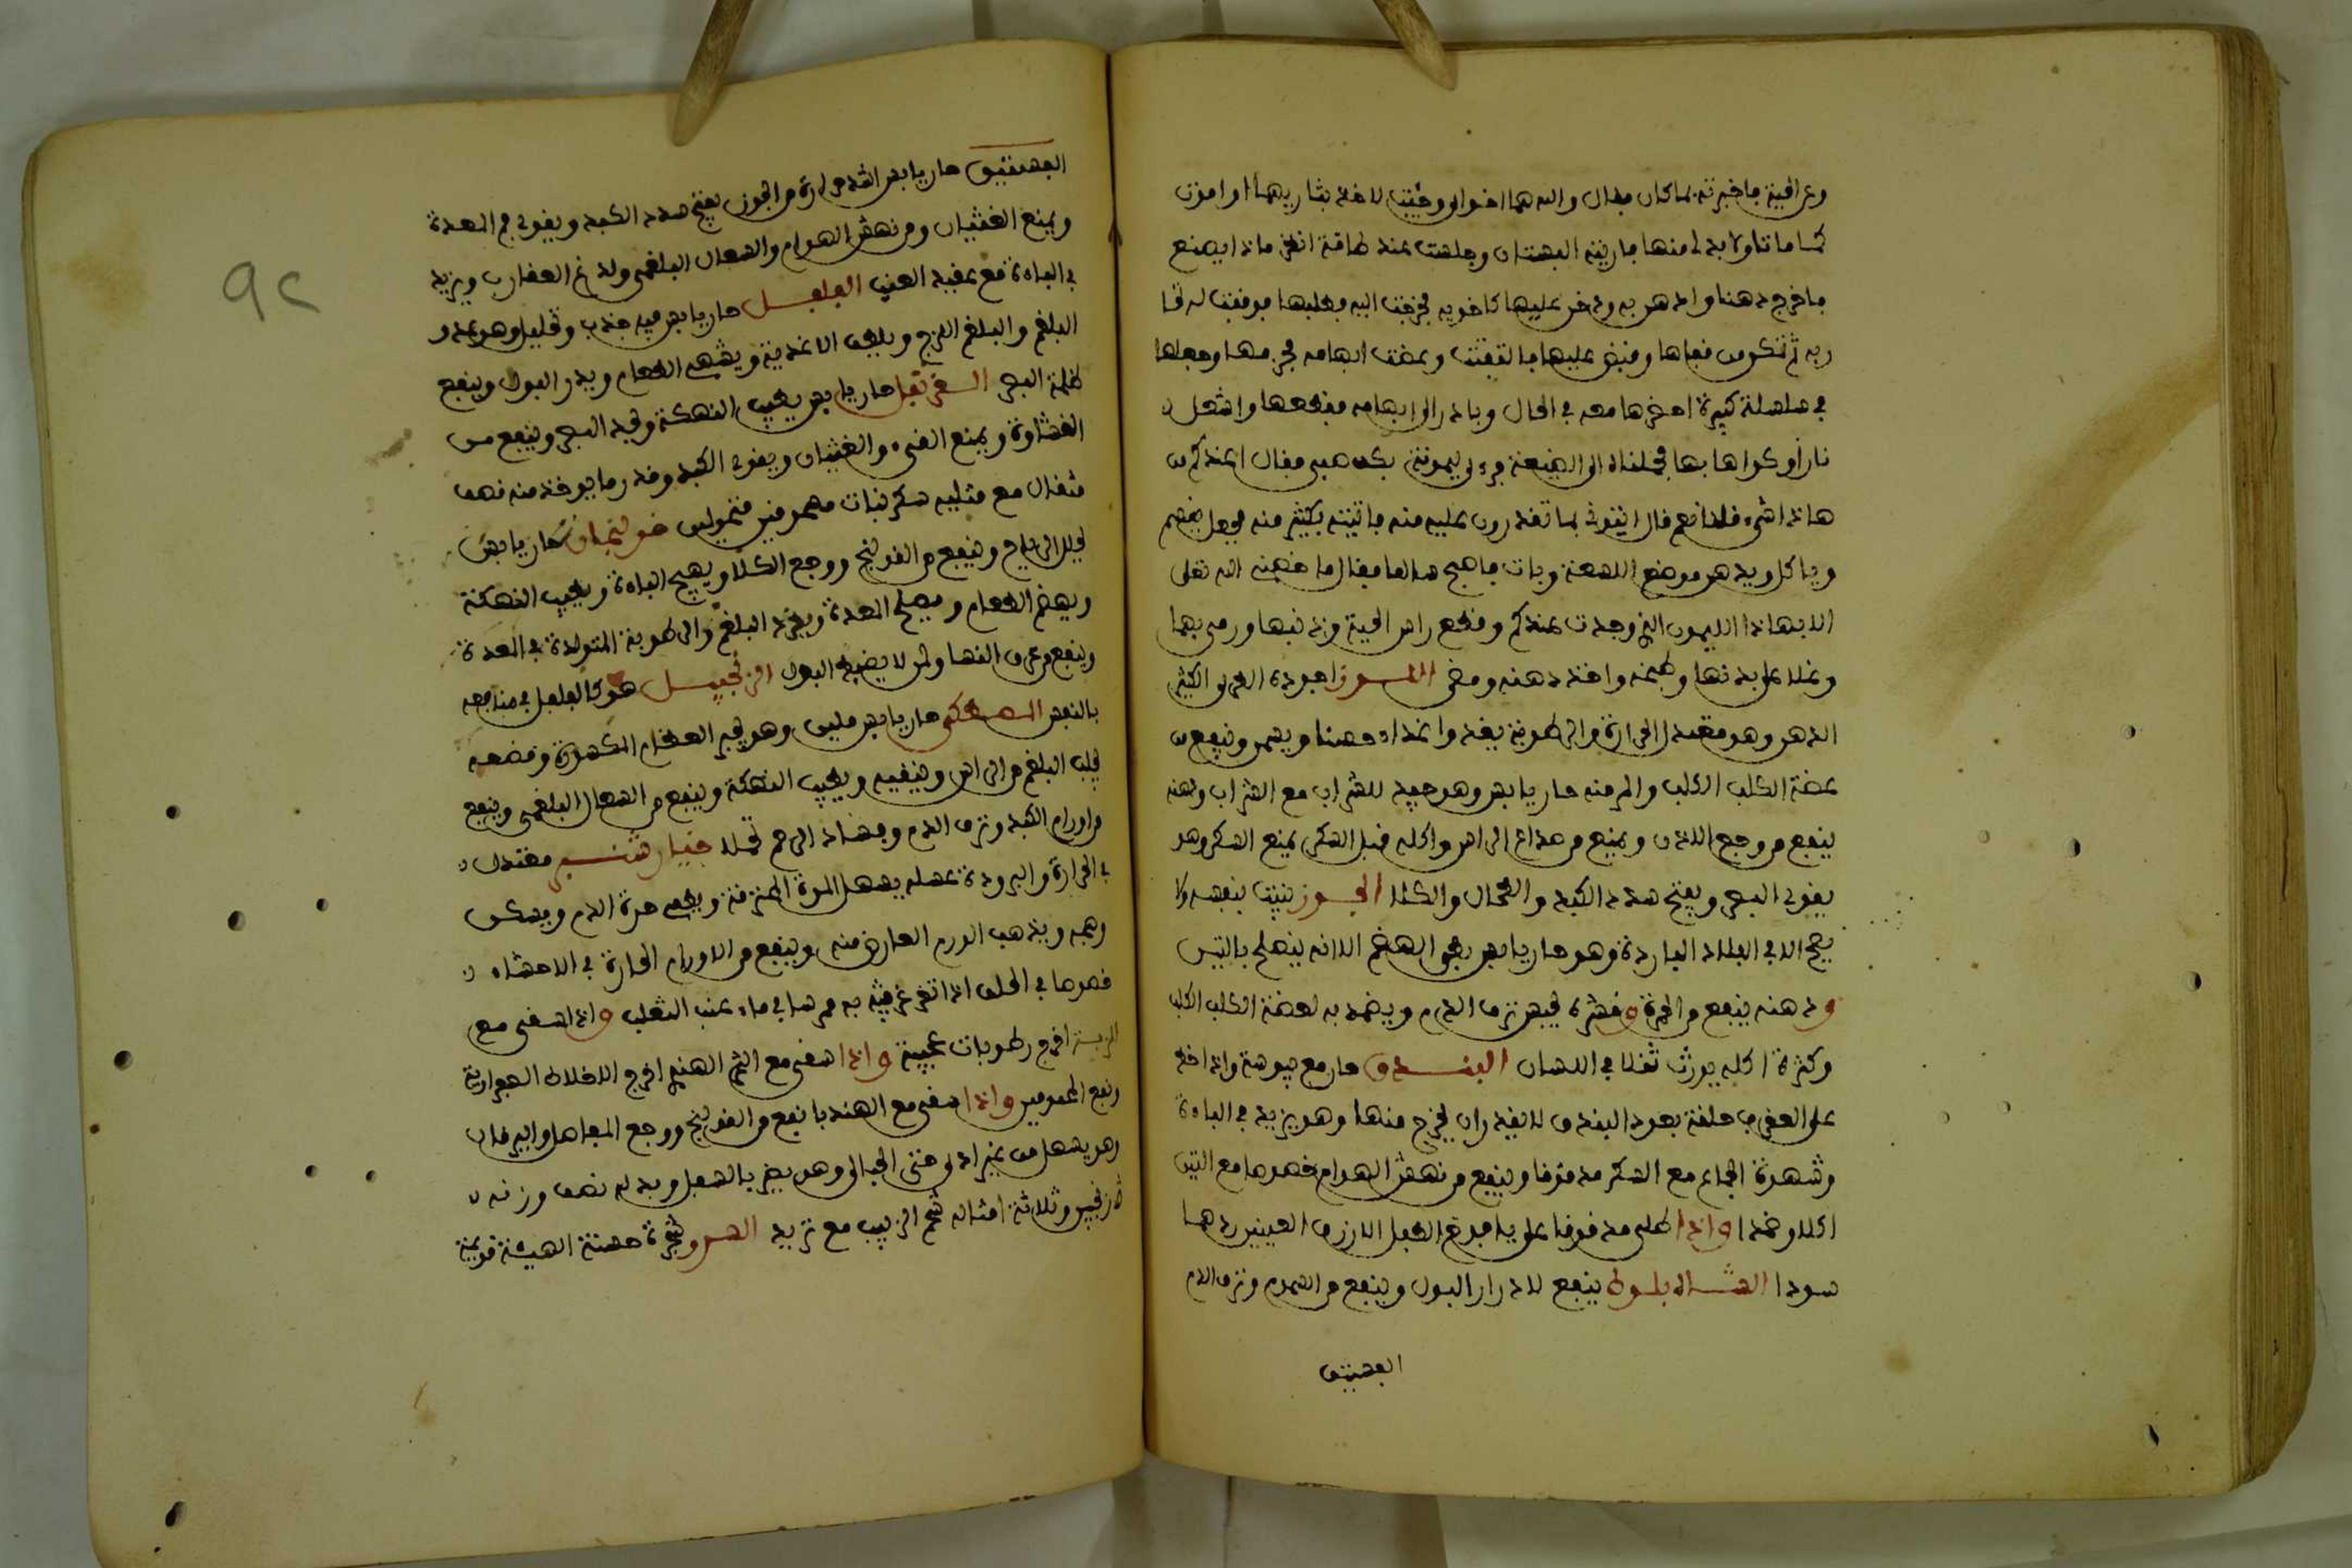 وعرافية فاخبرته بما كان فقال والله هما اخوالي وجئت لاخذ بثاريهما او اموت
كما ماتا ولا بد لي منها فاريته البستان وجلست عند طاقة انظر ماذا يصنع
فاخرج دهنا وادهن به ودخن عليها كاخويه فخرجت اليه وطلبها فوقفت له
ربه ثم نكص فتبعها وقبض عليها فالتفتت وعضت ابهامه فحزمها وجعلها
في سلسلة كبيرة احضرها معه في الحال وبادر الى ابهامه فقطعها واشعل
نارا وكواها بها فحملناه الى الضيعة فرءى ليمونة بكف صبي فقال اعندكم من
هاذا شيء فلنا نعم قال ايتوني بما تقدرون عليه منه فاتيته بكثير منه فجعل يقضم
وياكل ويدهن موضع اللسعة وبات فاصبح سالما فقال ما خلصني الله تعلى
الا بهاذا الليمون الذي وجدت عندكم وقطع راس الحية وذنبها ورمى بهما
وغلا على بدنها وطبخه واخذ دهنه ومضى اللوز اجوده الطري الكثير
الدهن وهو معتدل الحرارة والرطوبة يغذ واغذاء حسنا ويسمن وينفع من
عضة الكلب الكلب والمر منه حار يابس وهو جيد للشراب مع الشراب ودهنه
ينفع من وجع الاذن ويمنع من صداع الراس واكله قبل السكر يمنع السكر وهو
يقوي البصر ويفتح سدد الكبد والطحال والكلا الجوز نبت بنفسه ولا
يصح الا في البلاد الباردة وهو حار يابس بطي الهضم الا انه ينصلح بالتين
ودهنه ينفع من الحمرة وقشره يحبس نزف الدم ويضمد به لعضة الكلب الكلب
وكثرة اكله يورث ثقلا في اللسان البندق حار مع يبوسة واذا اخذ
على العقرب حلقة بعود البندق لا تقدر ان تخرج منها وهو يزيد في الباءة
وشهوة الجماع مع السكر مدقوقا وينفع من نهش الهوام خصوصا مع التين
اكلا وضمدا واذا طلي مدقوقا على يافوخ الطفل الازرق العينين ردهما
سودا الشاه بلوط ينفع لادرار البول وينفع من السموم ونزف الدم
الفستق
الفستق حار يابس اشد حرارة من الجوز يفتح سدد الكبد ويقوي فم المعدة
ويمنع الغثيان ومن نهش الهوام والسعال البلغمي ولدغ العقارب ويزيد
في الباه مع عقيد العنب الفلفل حار يابس فيه جذب وتحليل وهو عدو
البلغم والبلغم اللزج ويلطف الاغذية ويشهي الطعام ويدر البول وينفع
ظلمة البصر القرنفل حار يابس يطيب النهكة ويحد البصر وينفع من
الغشاوة ويمنع القيء والغثيان ويقوي الكبد وقدر ما يوخذ منه نصف
مثقال مع مثليه سكر نبات مسحوقين خولنجان حار يابس
يحلل الرياح وينفع من القولنج ووجع الكلا ويهيج الباه ويطيب النهكة
ويهضم الطعام ويصلح المعدة ويطرد البلغم والرطوبة المتولدة في المعدة
وينفع من عرق النسا ولمن لا يضبط البول الزنجبيل هو كالفلفل في منافعه
بالنص المصطكى حار يابس ملين وهو يجبر العظام المكسورة ومضغه
يجلب البلغم من الراس وينقيه ويطيب النهكة وينفع من السعال البلغمي وينفع
من اورام الكبد ونزف الدم وفساد الرحم تحملا خيار شنبر معتدل
في الحرارة والبرودة عسله يسهل المرة المحترقة ويطفي حدة الدم ويسكن
وهجه ويذهب الورم العارض منه وينفع من الاورام الحارة في الاحشاء
خصوصا في الحلق اذا تغرغر به ممروسا في ماء عنب الثعلب واذا اسقي مع
التربد اخرج رطوبات عجيبة واذا اسقي مع التمر الهندي اخرج الاخلاط الصفراوية
ونفع المحمومين واذا سقي مع الهندبا نفع من القولنج ووجع المفاصل واليرقان
وهو يسهل من غير اذى حتى الحبالى وهو يضر بالسفل وبدله نصف وزنه
ترنجبين وثلاثة امثاله شحم الزبيب مع تربد السرو شجرة حسنة الهيئة قويمة